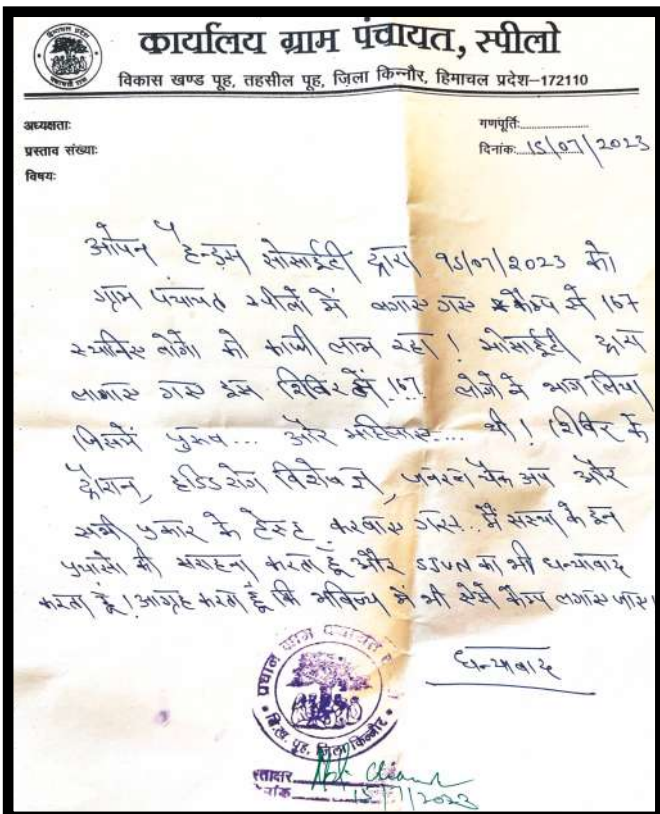 कार्यालय ग्राम पंचायत, स्पीलो
विकास खण्ड पूह, तहसील पूह, ज़िला किन्नौर, हिमाचल प्रदेश–172110
अध्यक्षताः
गणपूर्तिः....................
प्रस्ताव संख्याः
दिनांकः 15/07/2023
विषयः
ओपन हैन्ड्स सोसाईटी द्वारा 15/07/2023 को
ग्राम पंचायत स्पीलों में लगाए गए कैम्प से 167
स्थानिए लोगों को काफी लाभ रहा ! सोसाईटी द्वारा
लागाए गए इस शिविर में 167 लोगों ने भाग लिया
जिसमें पुरूष... और महिलाए... थी ! शिविर के
दौरान, हडिड रोग विशेषज्ञ, जनरल चैक अप और
सभी प्रकार के टेस्ट करवाए गए.. मैं संस्था के इन
प्रयासो की सराहना करता हूँ और SJVN का भी धन्यावाद
करता हूँ ! आग्रह करता हूँ कि भविष्य में भी ऐसे कैम्प लगाए जाए।
धन्यावाद
प्रधान ग्राम पंचायत
वि.ख. पूह, ज़िला किन्नौर
स्ताक्षर
15/7/2023